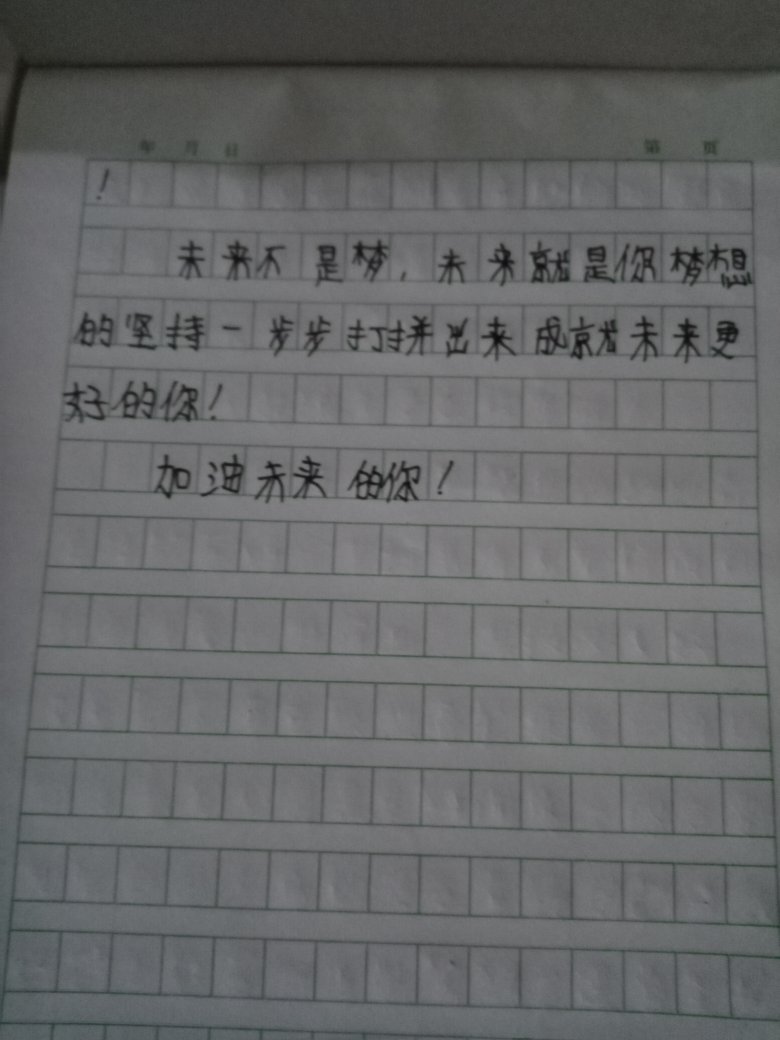 年 月 日 第 页
！
未来不是梦，未来就是你梦想
的坚持一步步打拼出来成就未来更
好的你！
加油未来的你！